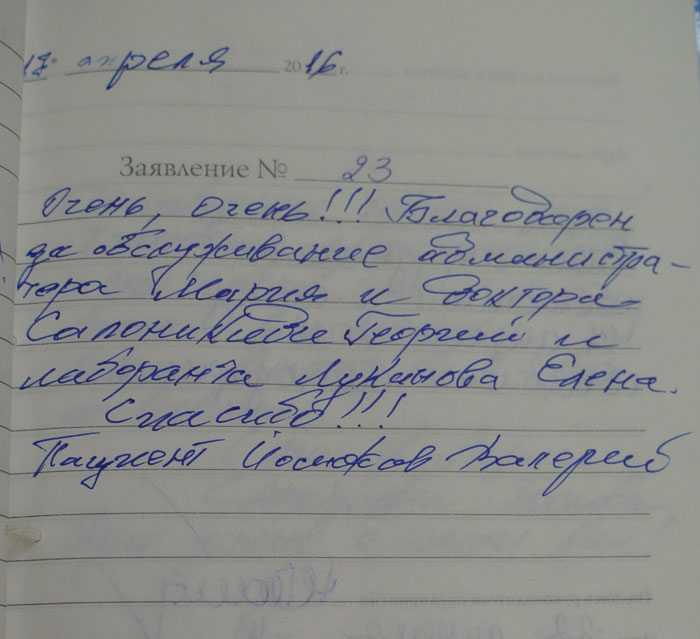 17 апреля 2016 г.
Заявление № 23
Очень, очень!!! Благодарен
за обслуживание администра-
тора Мария и доктора
Георгий и
лаборанта Лукинова Елена.
Спасибо!!!
Пациент Валерий